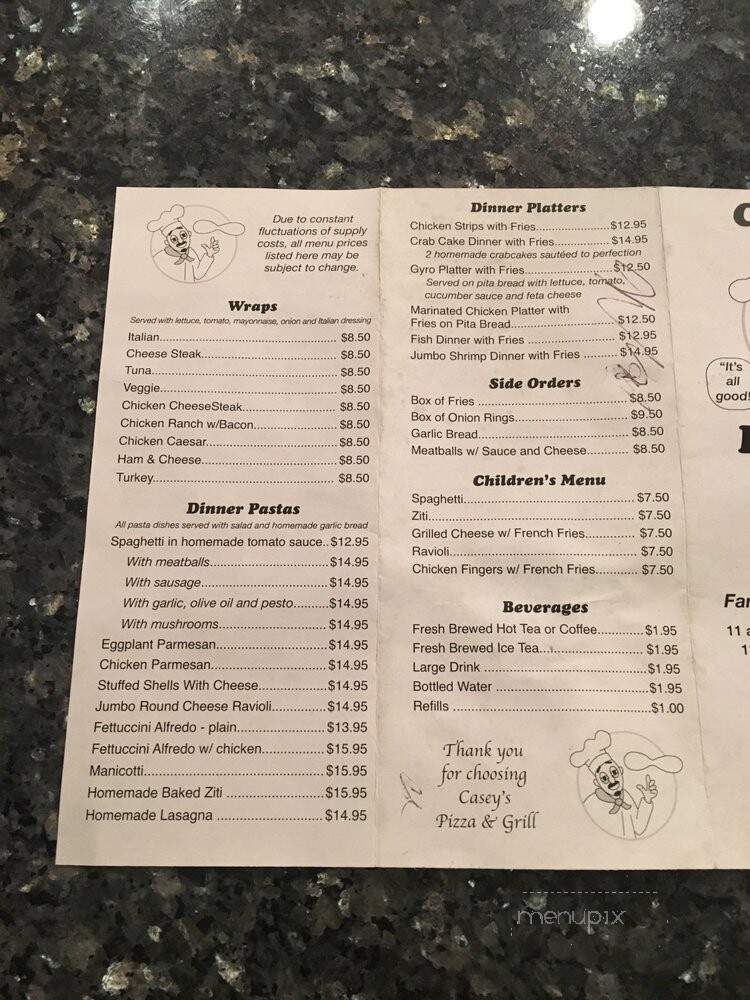 Due to constant
fluctuations of supply
costs, all menu prices
listed here may be
subject to change.
Wraps
Served with lettuce, tomato, mayonnaise, onion and Italian dressing
Italian................................................ $8.50
Cheese Steak..................................... $8.50
Tuna.................................................... $8.50
Veggie................................................. $8.50
Chicken CheeseSteak......................... $8.50
Chicken Ranch w/Bacon...................... $8.50
Chicken Caesar................................... $8.50
Ham & Cheese.................................... $8.50
Turkey................................................. $8.50
Dinner Pastas
All pasta dishes served with salad and homemade garlic bread
Spaghetti in homemade tomato sauce..$12.95
With meatballs..............................$14.95
With sausage................................$14.95
With garlic, olive oil and pesto..........$14.95
With mushrooms...........................$14.95
Eggplant Parmesan...........................$14.95
Chicken Parmesan............................$14.95
Stuffed Shells With Cheese................$14.95
Jumbo Round Cheese Ravioli.............$14.95
Fettuccini Alfredo - plain.....................$13.95
Fettuccini Alfredo w/ chicken..............$15.95
Manicotti............................................$15.95
Homemade Baked Ziti ......................$15.95
Homemade Lasagna ........................$14.95
Dinner Platters
Chicken Strips with Fries....................$12.95
Crab Cake Dinner with Fries..............$14.95
2 homemade crabcakes sautéed to perfection
Gyro Platter with Fries.......................$12.50
Served on pita bread with lettuce, tomato,
cucumber sauce and feta cheese
Marinated Chicken Platter with
Fries on Pita Bread........................... $12.50
Fish Dinner with Fries ...................... $12.95
Jumbo Shrimp Dinner with Fries ....... $14.95
Side Orders
Box of Fries ...................................... $8.50
Box of Onion Rings............................ $9.50
Garlic Bread...................................... $8.50
Meatballs w/ Sauce and Cheese.......... $8.50
Children's Menu
Spaghetti........................................... $7.50
Ziti..................................................... $7.50
Grilled Cheese w/ French Fries............ $7.50
Ravioli............................................... $7.50
Chicken Fingers w/ French Fries.......... $7.50
Beverages
Fresh Brewed Hot Tea or Coffee...........$1.95
Fresh Brewed Ice Tea......................... $1.95
Large Drink .......................................$1.95
Bottled Water ....................................$1.95
Refills ...............................................$1.00
Thank you
for choosing
Casey's
Pizza & Grill
"It's
all
good!
menupix